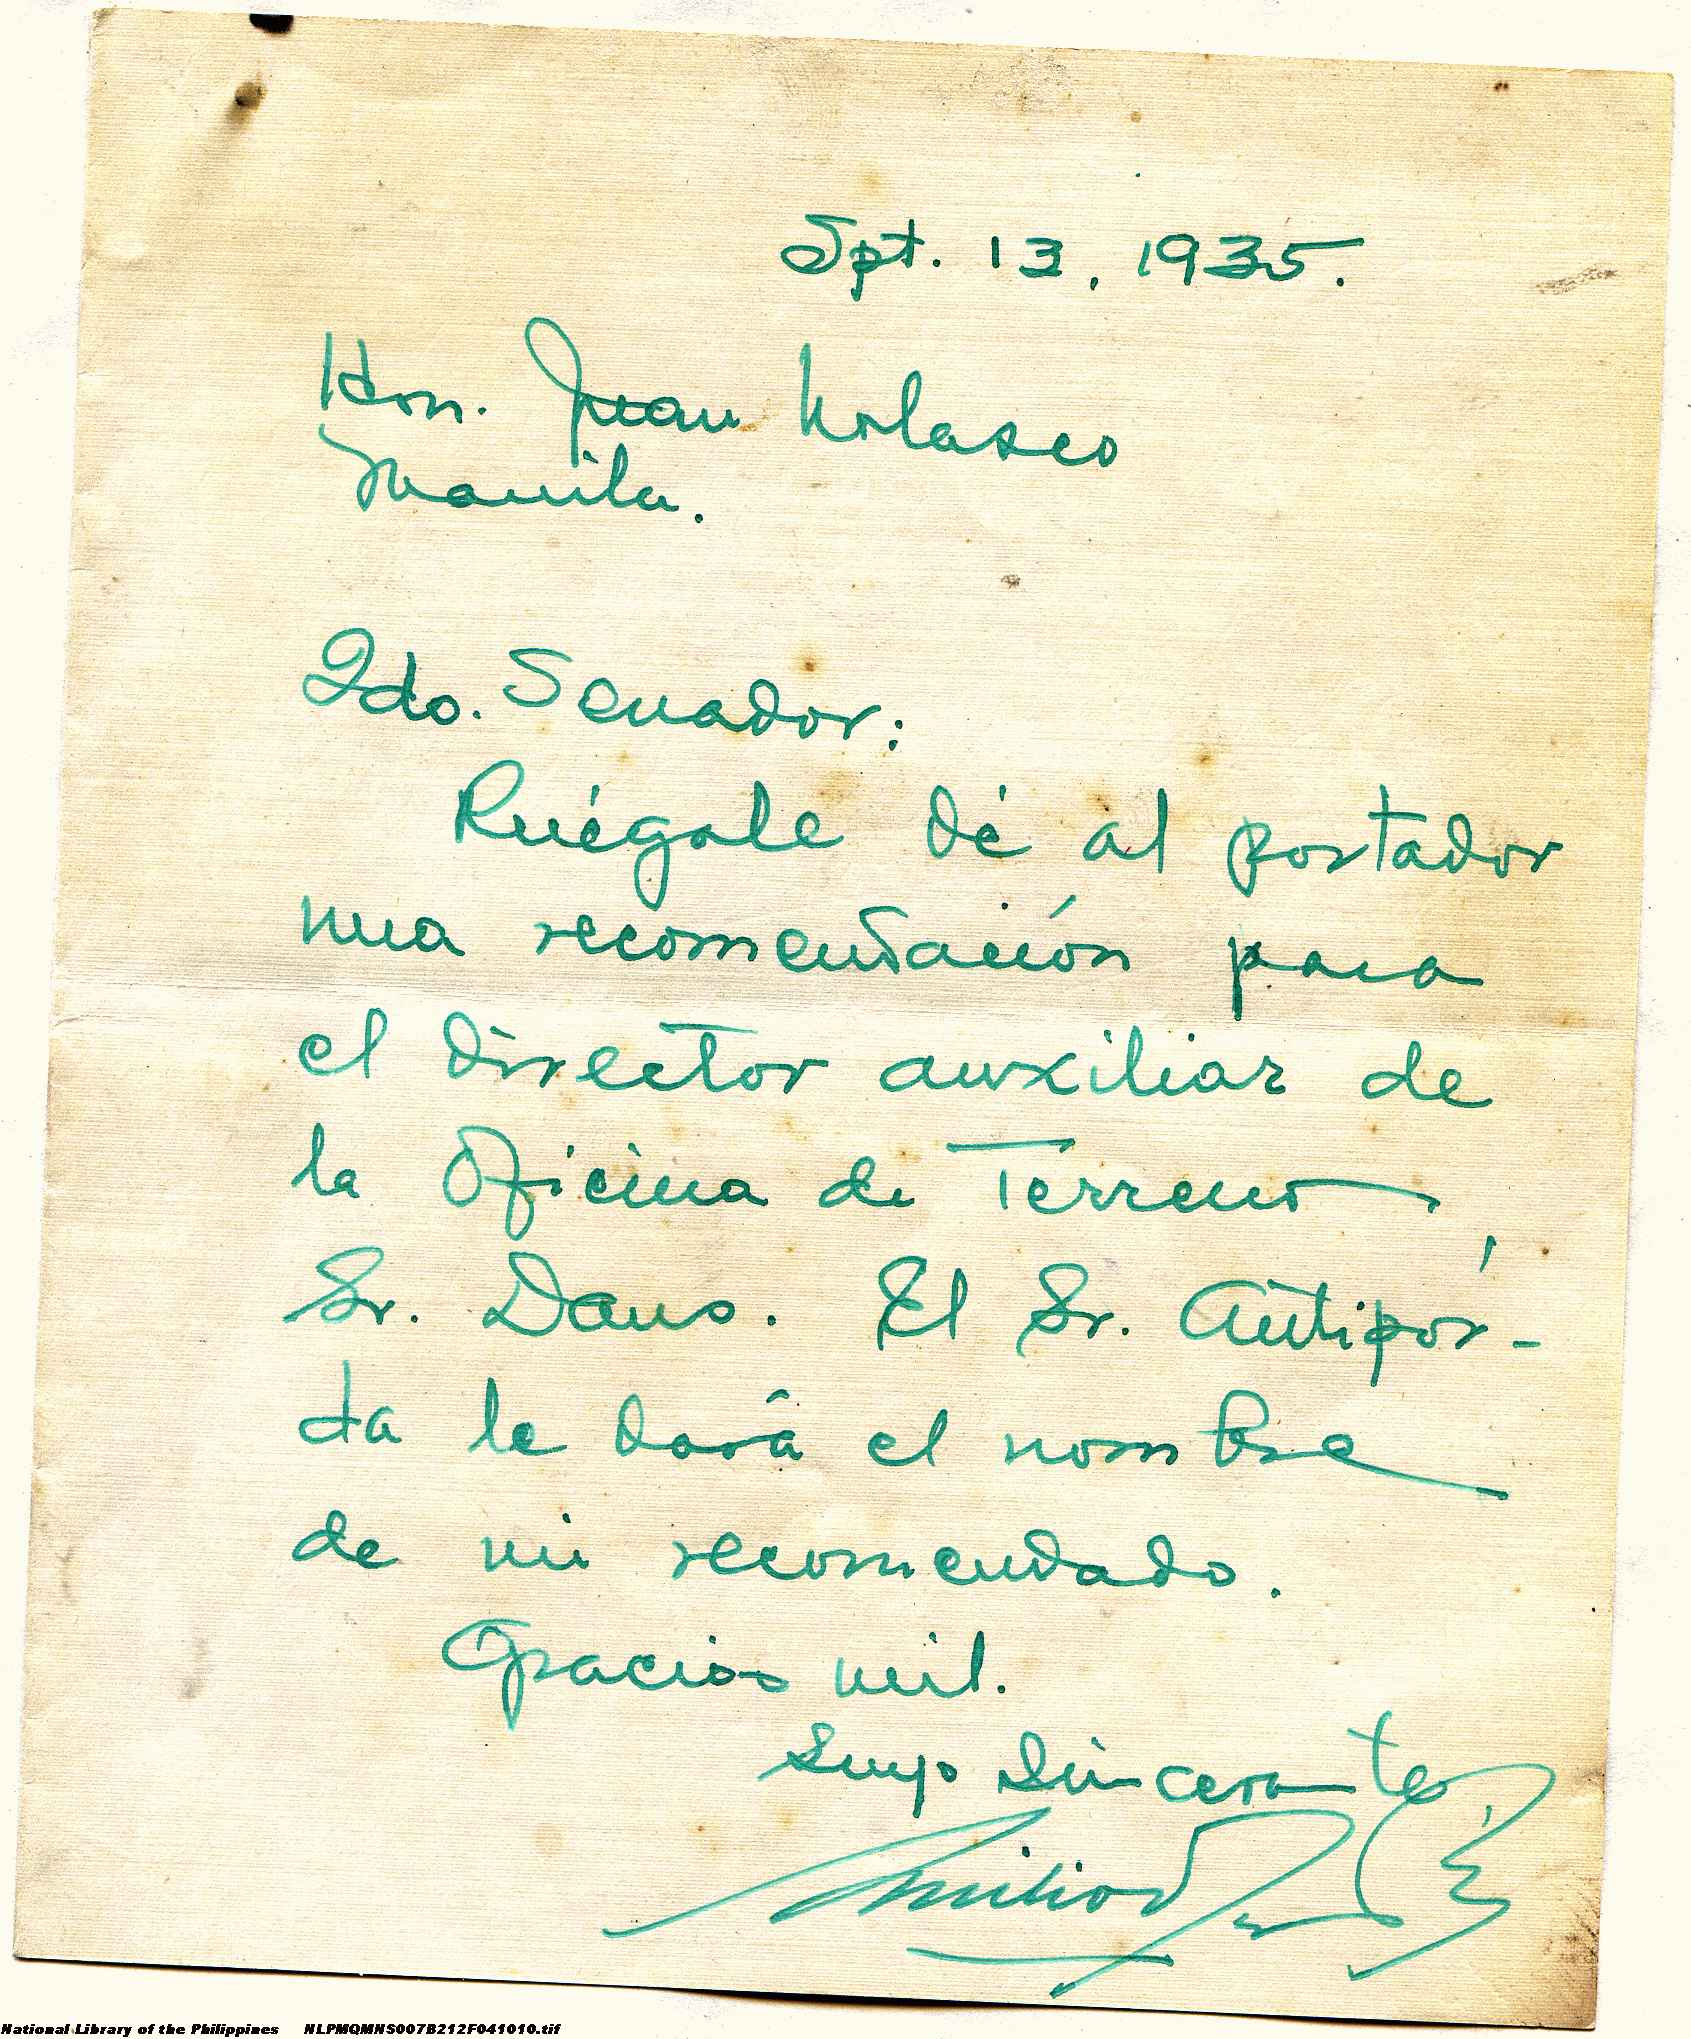 Spt. 13, 1935.
Hon. Juan Nolasco
Manila.
Qdo. Senador:
Ruégole dé al portador
una recomendación para
el director auxiliar de
la Oficina de Terreno,
Sr. Dans. El Sr. Antipór-
da le dará el nombre
de mi recomendado.
Gracias mil.
Suyo sincerante
National Library of the Philippines NLPMQMNS007B212F041010.tif